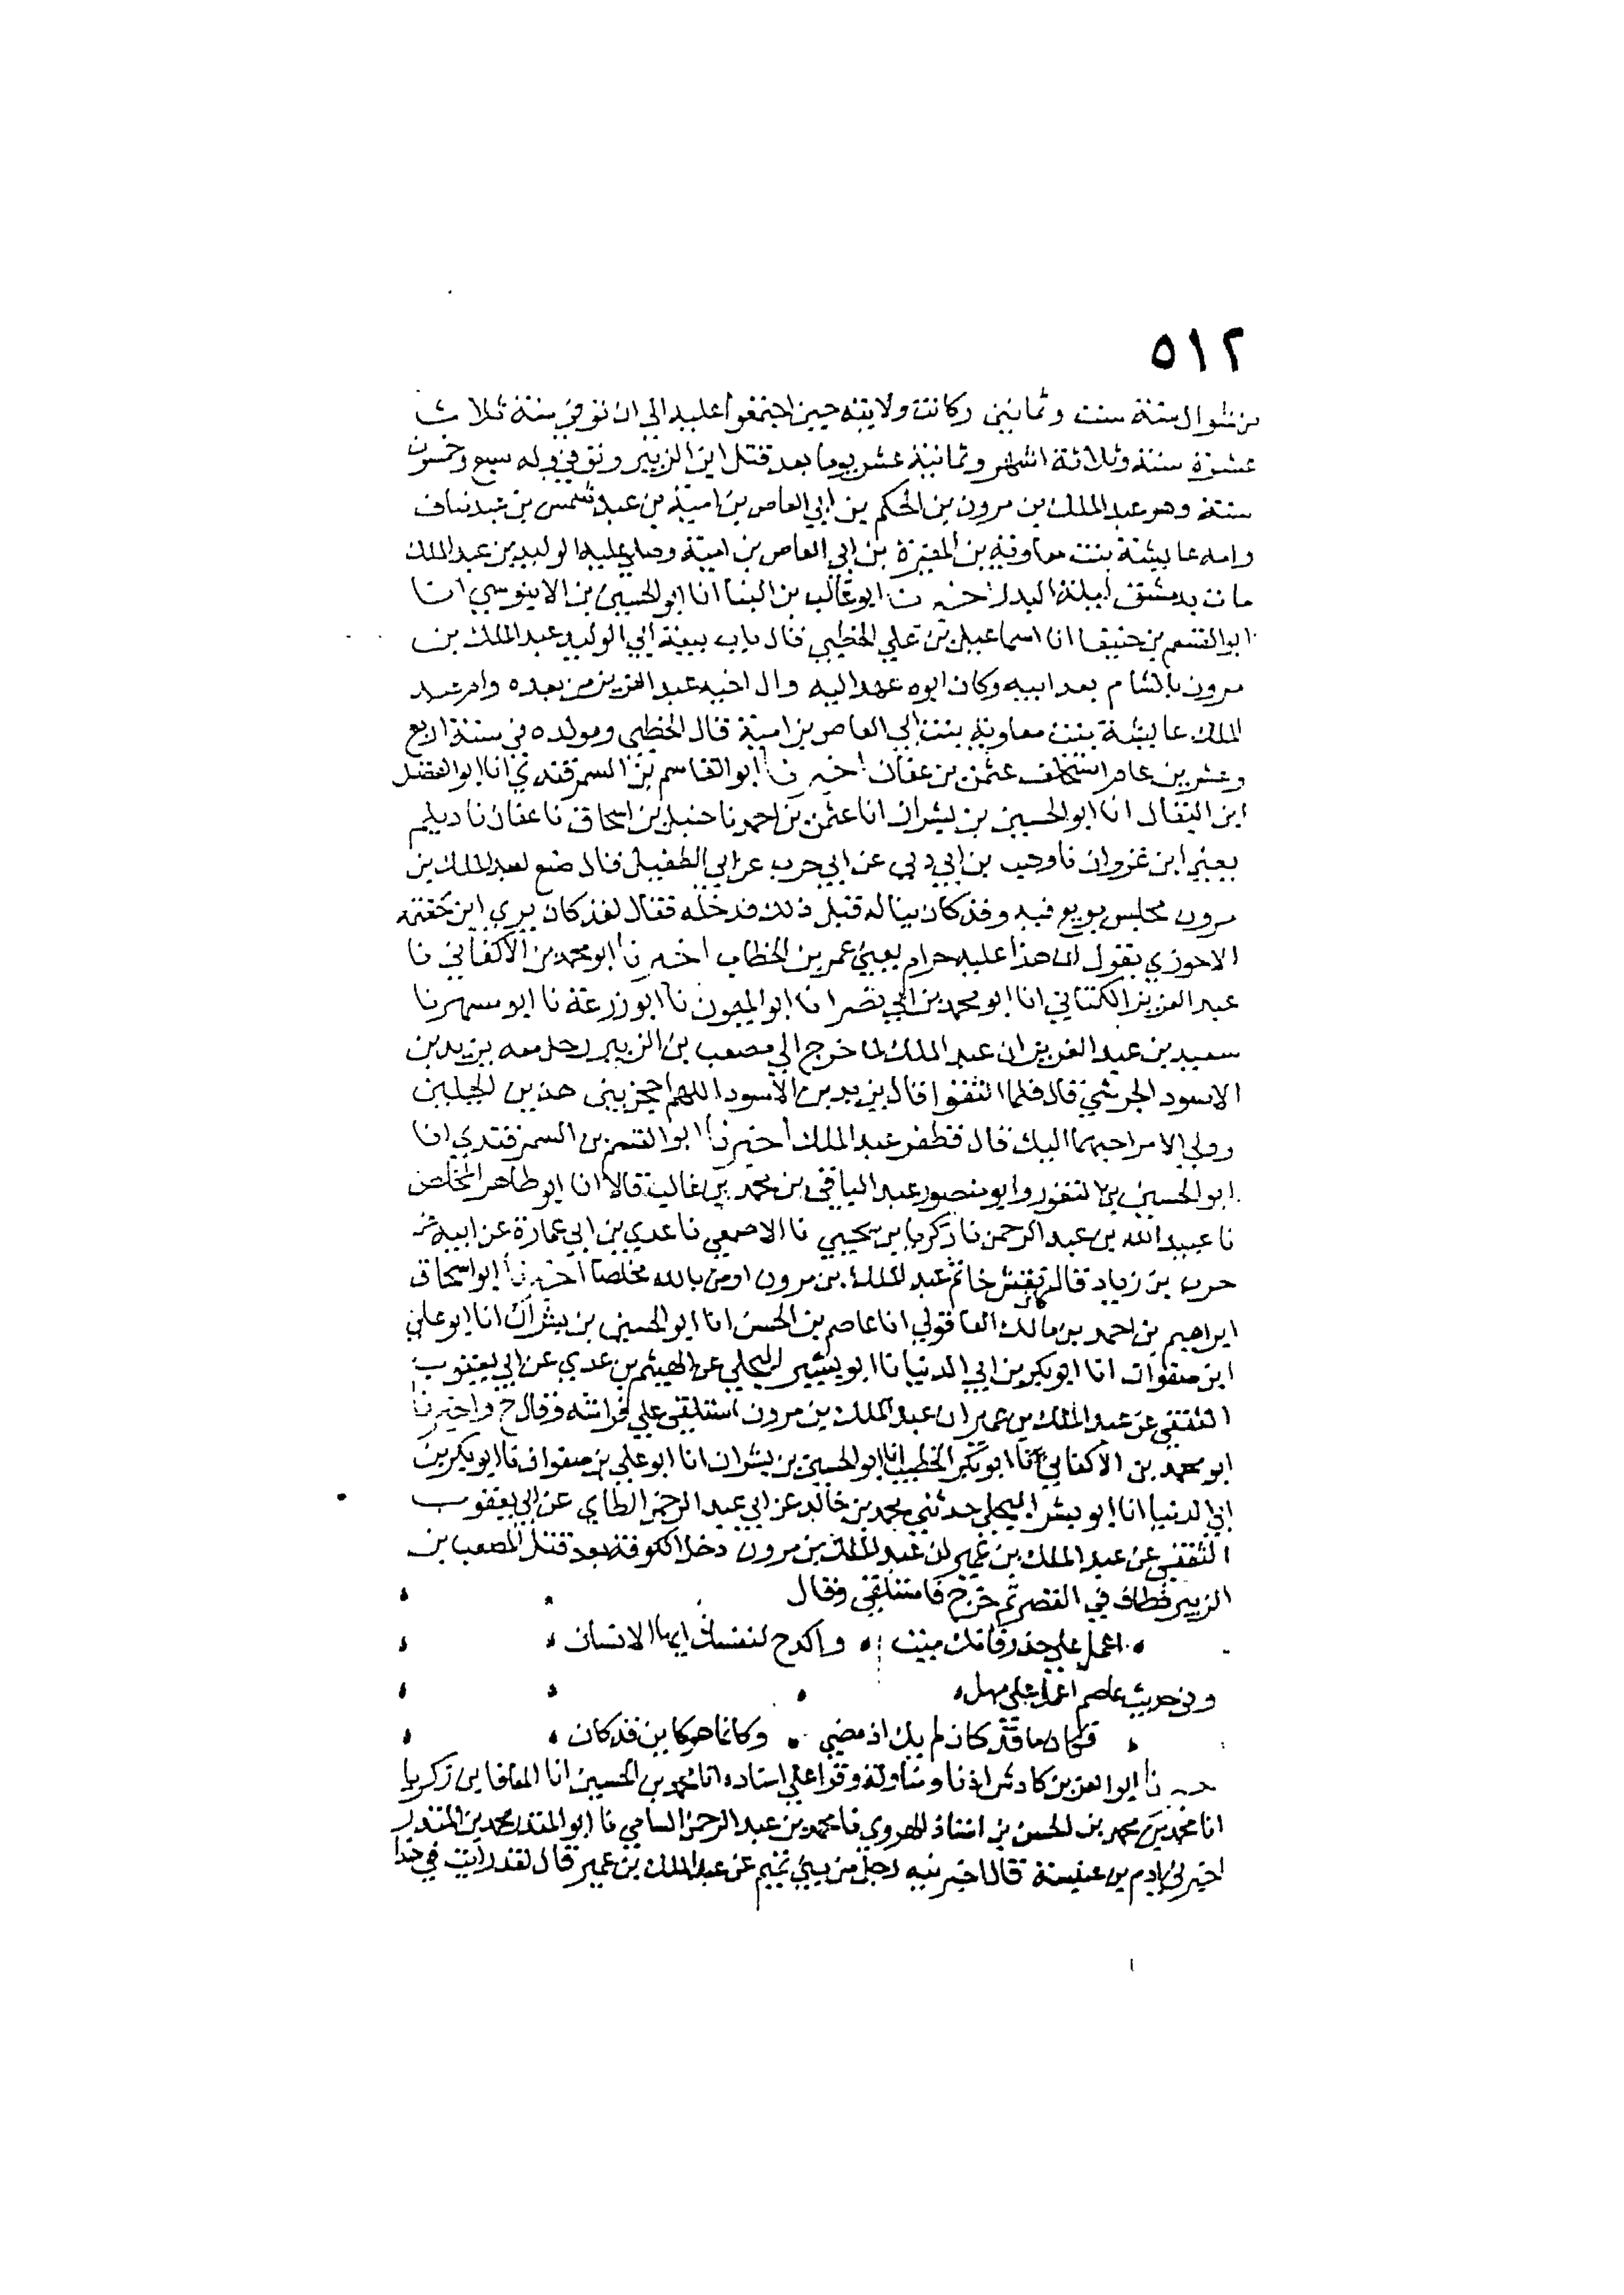 ٥١٢
من شوال سنة ست وثمانين وكانت ولايته حين اجتمعوا عليه الى ان توفي سنة ثلاث
عشرة سنة وثلاثة اشهر وثمانية عشر يوما بعد قتل ابن الزبير وتوفي وله سبع وخمسون
سنة وهو عبد الملك بن مرون بن الحكم بن ابي العاص بن امية بن عبد شمس بن عبد مناف
وامه عايشة بنت معاوية بن المغيرة بن ابي العاص بن امية وصلى عليه الوليد بن عبد الملك
مات بدمشق ليلة البدر اخبرنا ابو غالب بن البنا انا ابو الحسين بن الابنوسي انا
ابو القسم بن حنيفا انا اسماعيل بن علي الخطبي قال باب بيعة ابي الوليد عبد الملك بن
مرون بالشام بعد ابيه وكان ابوه عهد اليه وال اخيه عبد العزيز من بعده وام عبد
الملك عايشة بنت معاوية بنت ابي العاص بن امية قال الخطبي ومولده في سنة اربع
وعشرين عام استخلف عثمن بن عفان اخبرنا ابو القاسم بن السمرقندي انا ابو الفضل
ابن البقال انا ابو الحسين بن بشران انا عثمن بن احمد نا حنبل بن اسحاق نا عفان نا ديلم
يعني ابن غزوان نا وهب بن ابي دبي عن ابي حرب عن ابي الطفيل قال صنع لعبد الملك بن
مرون مجلس بويع فيه وقد كان بنا له قبل ذلك فدخله فقال لقد كان يرى ابن حنتمه
الاحوزي يقول ان هذا عليه حرام يعني عمر بن الخطاب اخبرنا ابو محمد بن الاكفاني نا
عبد العزيز الكتاني انا ابو محمد بن ابي نصر انا ابو الميمون نا ابو زرعة نا ابو مسهر نا
سعيد بن عبد العزيز ان عبد الملك لما خرج الى مصعب بن الزبير رحل معه يزيد بن
الاسود الجرشي قال فلما التقوا قال يزيد بن الاسود اللهم احجز بين هذين الجبلين
وولي الامر احبهما اليك قال فظفر عبد الملك اخبرنا ابو القسم بن السمرقندي انا
ابو الحسين بن النقور وابو منصور عبد الباقي بن محمد بن غالب قالا انا ابو طاهر المخلص
نا عبيد الله بن عبد الرحمن نا زكريا بن يحيى نا الاصمعي نا عدي بن ابي عمارة عن ابيه عن
حرب بن زياد قال كان نقش خاتم عبد الملك بن مرون اومن بالله مخلصا اخبرنا ابو اسحاق
ابراهيم بن احمد بن مالك العاقولي انا عاصم بن الحسن انا ابو الحسين بن بشران انا ابو علي
ابن صفوان انا ابو بكر بن ابي الدنيا نا ابو بشير البجلي عن الهيثم بن عدي عن ابي يعقوب
الثقفي عن عبد الملك بن عمير ان عبد الملك بن مرون استلقى على فراشه وقال ح واخبرنا
ابو محمد بن الاكفاني نا ابو بكر الخطيب انا ابو الحسين بن بشران انا ابو علي بن صفوان نا ابو بكر بن
ابي الدنيا انا ابو بشر البجلي حدثني محمد بن خالد عن ابي عبد الرحمن الطاي عن ابي يعقوب
الثقفي عن عبد الملك بن عمير ان عبد الملك بن مرون دخل الكوفة بعد قتل المصعب بن
الزبير فطاف في القصر ثم خرج فاستلقى وقال
اعمل على حذر فانك ميت واكدح لنفسك ايها الانسان
وفي حديث عاصم اعمل على مهل
فكان ما قد كان لم يك اذ مضى وكانما هو كاين قد كان
نا ابو العز بن كادش اذنا ومناولة وقرا علي اسناده انا محمد بن الحسين انا المعافا بن زكريا
انا محمد بن محمد بن الحسن بن اشناذ الهروي نا محمد بن عبد الرحمن السامي نا ابو المنذر محمد بن المنذر
اخبرني ادم بن عنبسة قال اخبرنيه رجل من بني تميم عن عبد الملك بن عمير قال لقد رايت في هذا